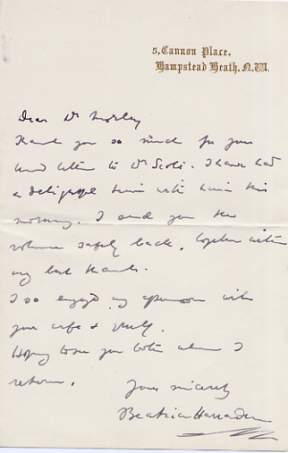 5, Cannon Place,
Hampstead Heath, N.W.
Dear Dr Morley
Thank you so much for your
kind letter to Dr Scott. I have had
a delightful time with him this
morning. I send you the
volume safely back, together with
my best thanks.
I so enjoyed my afternoon with
your wife &
Hoping to see you both when I
return,
Yours sincerely
Beatrice Harraden